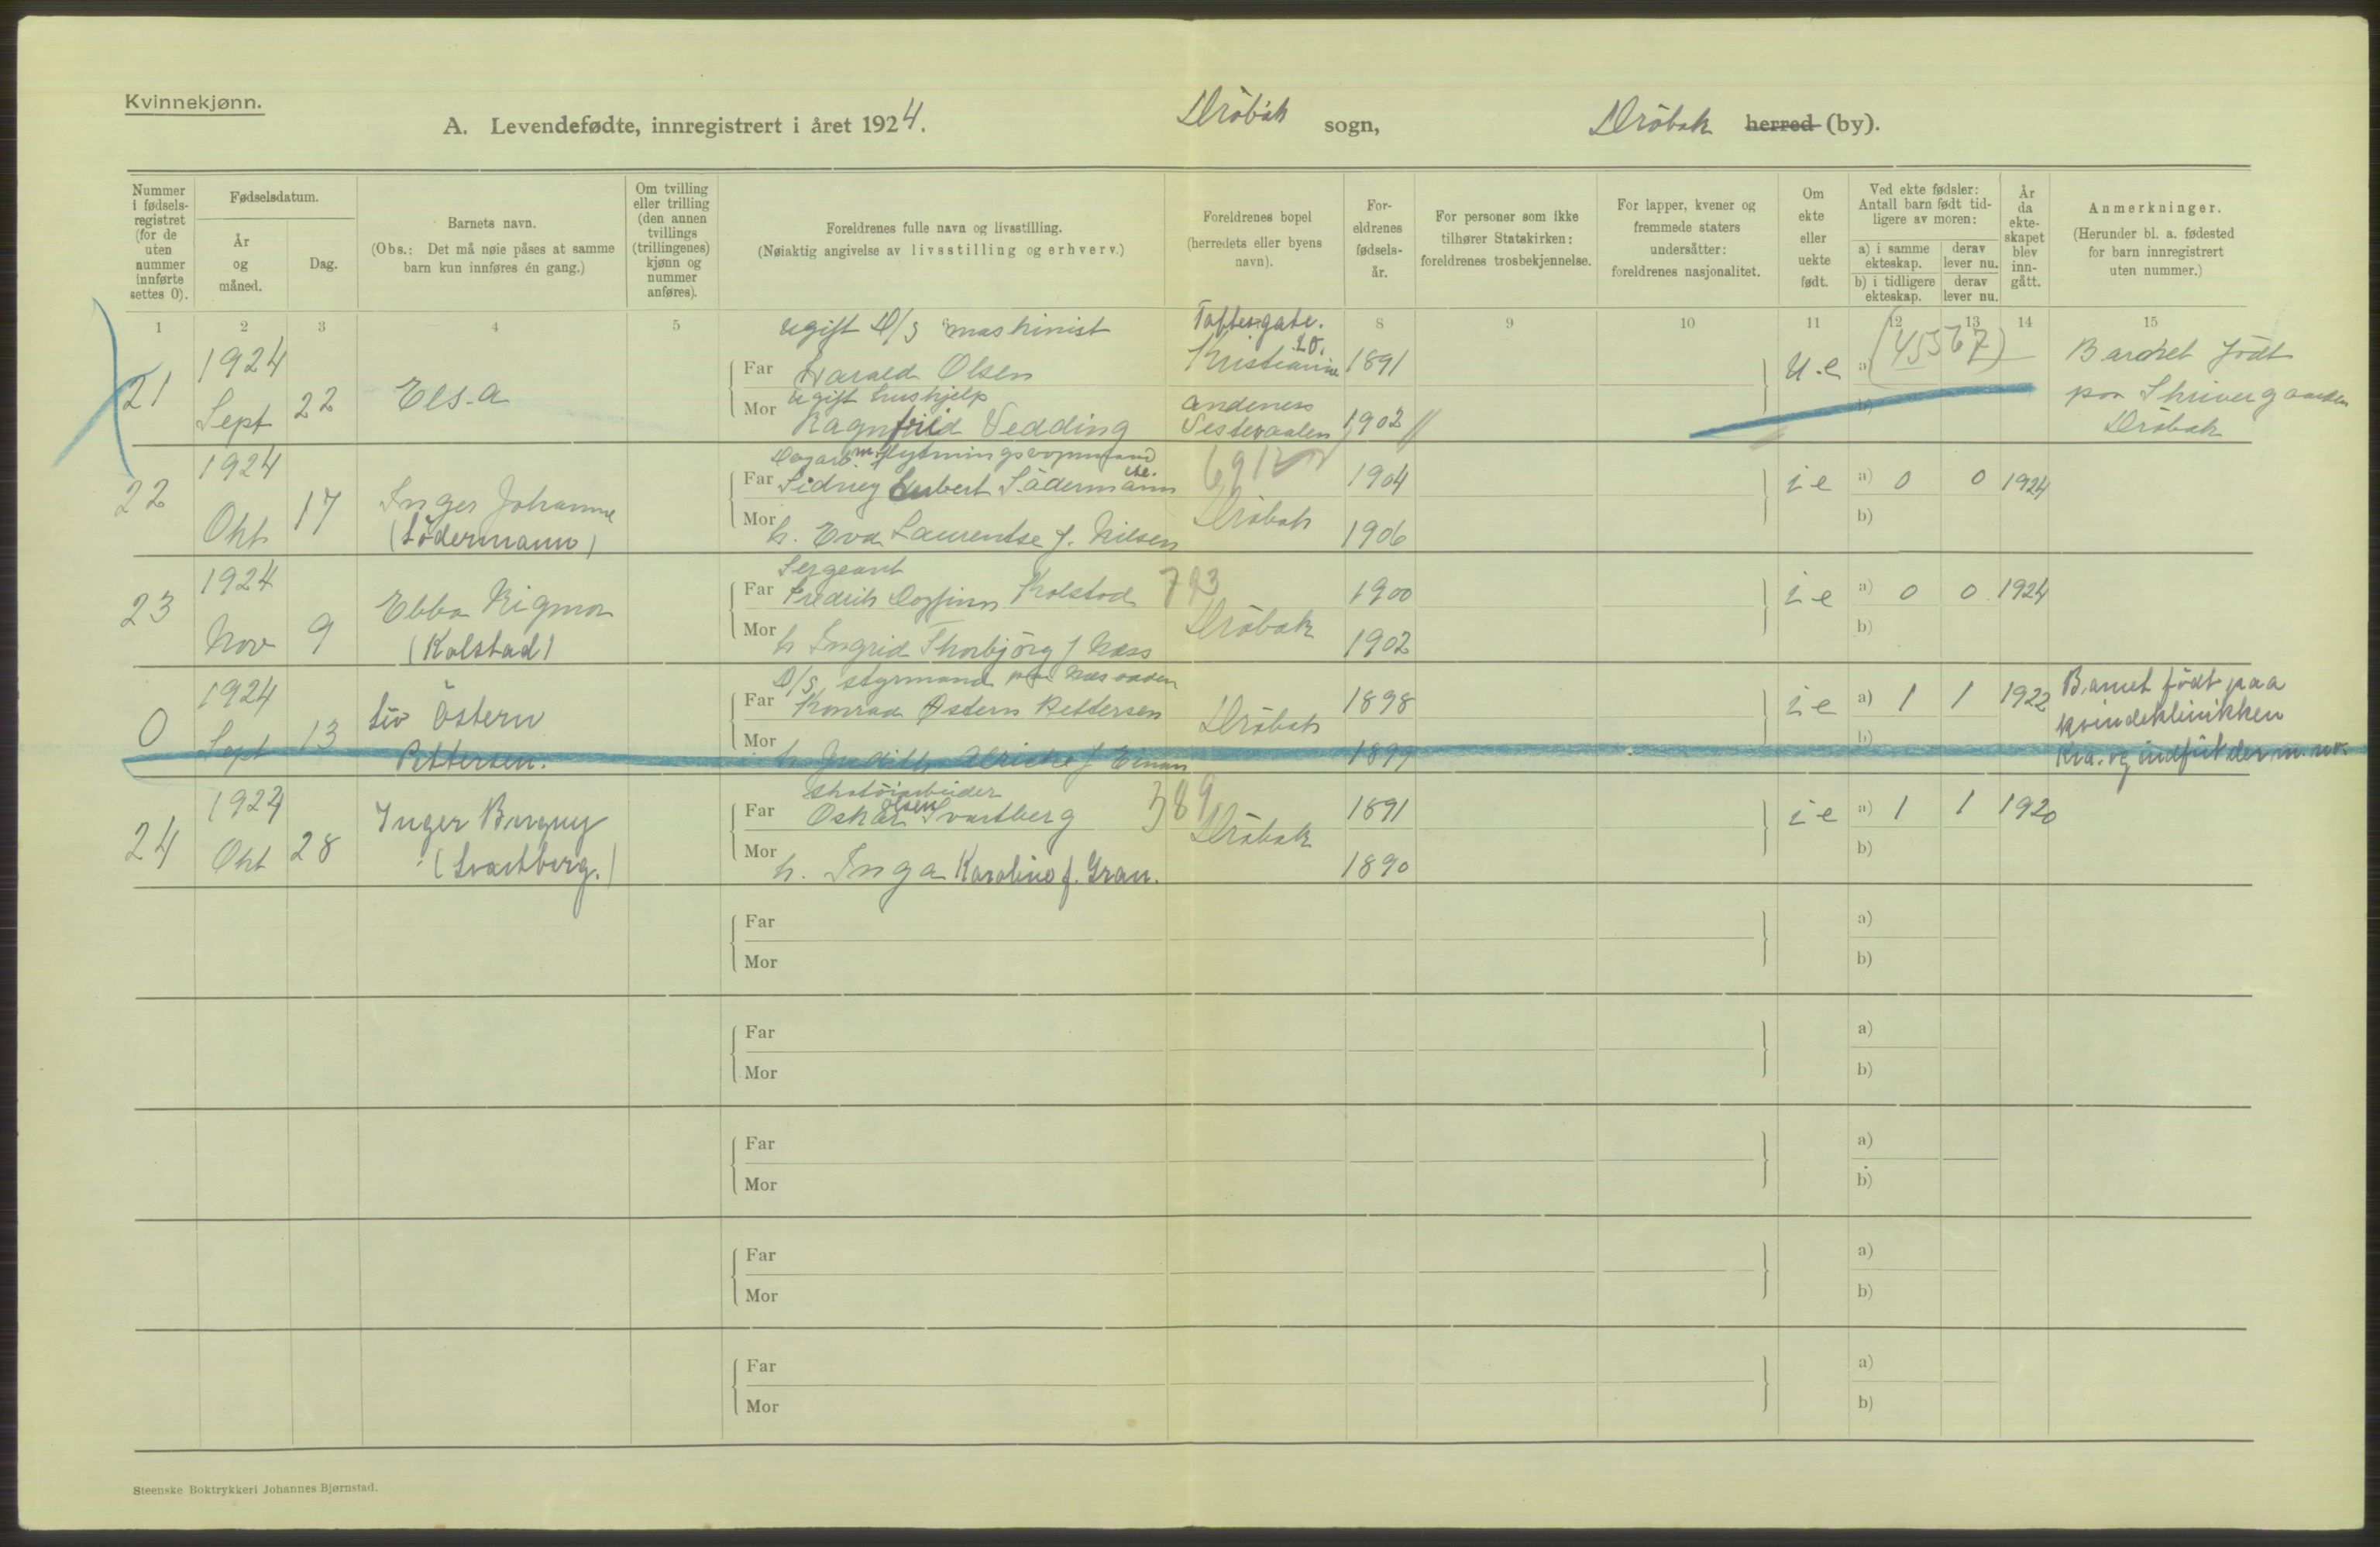 Kvinnekjønn.
A. Levendefødte, innregistrert i året 1924. Drøbak sogn, Drøbak herred (by).
Nummer i fødsels-registret (for de uten nummer innførte settes 0).
Fødselsdatum.
År og måned.
Dag.
Barnets navn.
(Obs.: Det må nøie påses at samme barn kun innføres én gang.)
Om tvilling eller trilling (den annen tvillings (trillingenes) kjønn og nummer anføres).
Foreldrenes fulle navn og livsstilling.
(Nøiaktig angivelse av livsstilling og erhverv.)
Foreldrenes bopel (herredets eller byens navn).
For-eldrenes fødsels-år.
For personer som ikke tilhører Statskirken: foreldrenes trosbekjennelse.
For lapper, kvener og fremmede staters undersåtter: foreldrenes nasjonalitet.
Om ekte eller uekte født.
Ved ekte fødsler: Antall barn født tid-ligere av moren:
a) i samme ekteskap. derav lever nu.
b) i tidligere ekteskap. derav lever nu.
År da ekte-skapet blev inn-gått.
Anmerkninger.
(Herunder bl. a. fødested for barn innregistrert uten nummer.)
1 2 3 4 5 8 9 10 11 12 13 14 15
ugift D/S maskinist
21 1924 Sept 22 Elsa
Far Harald Olsen Toftesgate. 20. Kristiania 1891 u.e a) (45567) Barnet födt
ugift hushjelp
Mor Ragnfrid Vedding Andenes Vesteraalen 1902 b) paa Skrivergaarden Dröbak
22 1924 Okt 17 Inger Johanne (Södermann)
Far Sidney Södermann 691 Dröbak 1904 i e a) 0 0 1924
Mor h. Eva Laurentse f. Nilsen 1906 b)
Sergeant
23 1924 Nov 9 Ebba Rigmor (Kolstad)
Far Fredrik Dagfinn Kolstad 793 Dröbak 1900 i e a) 0 0 1924
Mor h Ingrid Thorbjörg f Næss 1902 b)
D/S styrmand
0 1924 Sept 13 Liv Östern Pettersen.
Far Konrad Østern Pettersen Dröbak 1898 i e a) 1 1 1922 Barnet födt paa kvindeklinikken
Mor h Judith f 1899 b) Kra. og indfört der m. nr.
24 1924 Okt 28 Inger Bergny (Svartberg.)
Far Oskar Olsen Svartberg 389 Dröbak 1891 i e a) 1 1 1920
Mor h. Inga Karoline f. Gran. 1890 b)
Far a)
Mor b)
Far a)
Mor b)
Far a)
Mor b)
Far a)
Mor b)
Far a)
Mor b)
Steenske Boktrykkeri Johannes Bjørnstad.